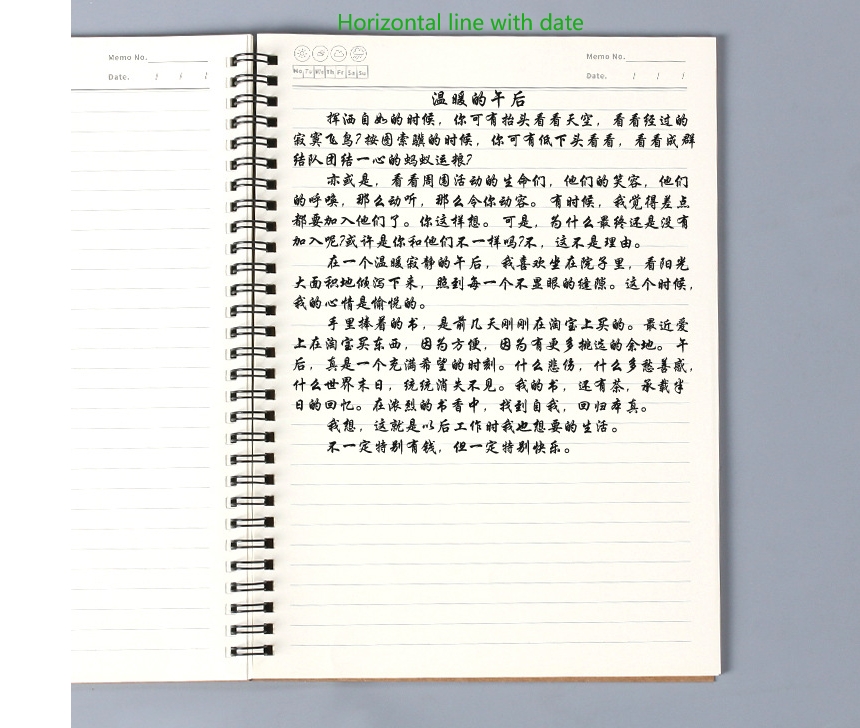 Horizontal line with date
Memo No.
Date. / / /
Memo No.
Mo Tu We Th Fr Sa Su
Date. / / /
温暖的午后
挥洒自如的时候，你可有抬头看看天空，看看经过的
寂寞飞鸟？按图索骥的时候，你可有低下头看看，看看成群
结队团结一心的蚂蚁运粮？
亦或是，看看周围活动的生命们，他们的笑容，他们
的呼唤，那么动听，那么令你动容。有时候，我觉得差点
都要加入他们了。你这样想。可是，为什么最终还是没有
加入呢？或许是你和他们不一样吗？不，这不是理由。
在一个温暖寂静的午后，我喜欢坐在院子里，看阳光
大面积地倾泻下来，照到每一个不显眼的缝隙。这个时候，
我的心情是愉悦的。
手里捧着的书，是前几天刚刚在淘宝上买的。最近爱
上在淘宝买东西，因为方便，因为有更多挑选的余地。午
后，真是一个充满希望的时刻。什么悲伤，什么多愁善感，
什么世界末日，统统消失不见。我的书，还有茶，承载半
日的回忆。在浓烈的书香中，找到自我，回归本真。
我想，这就是以后工作时我也想要的生活。
不一定特别有钱，但一定特别快乐。